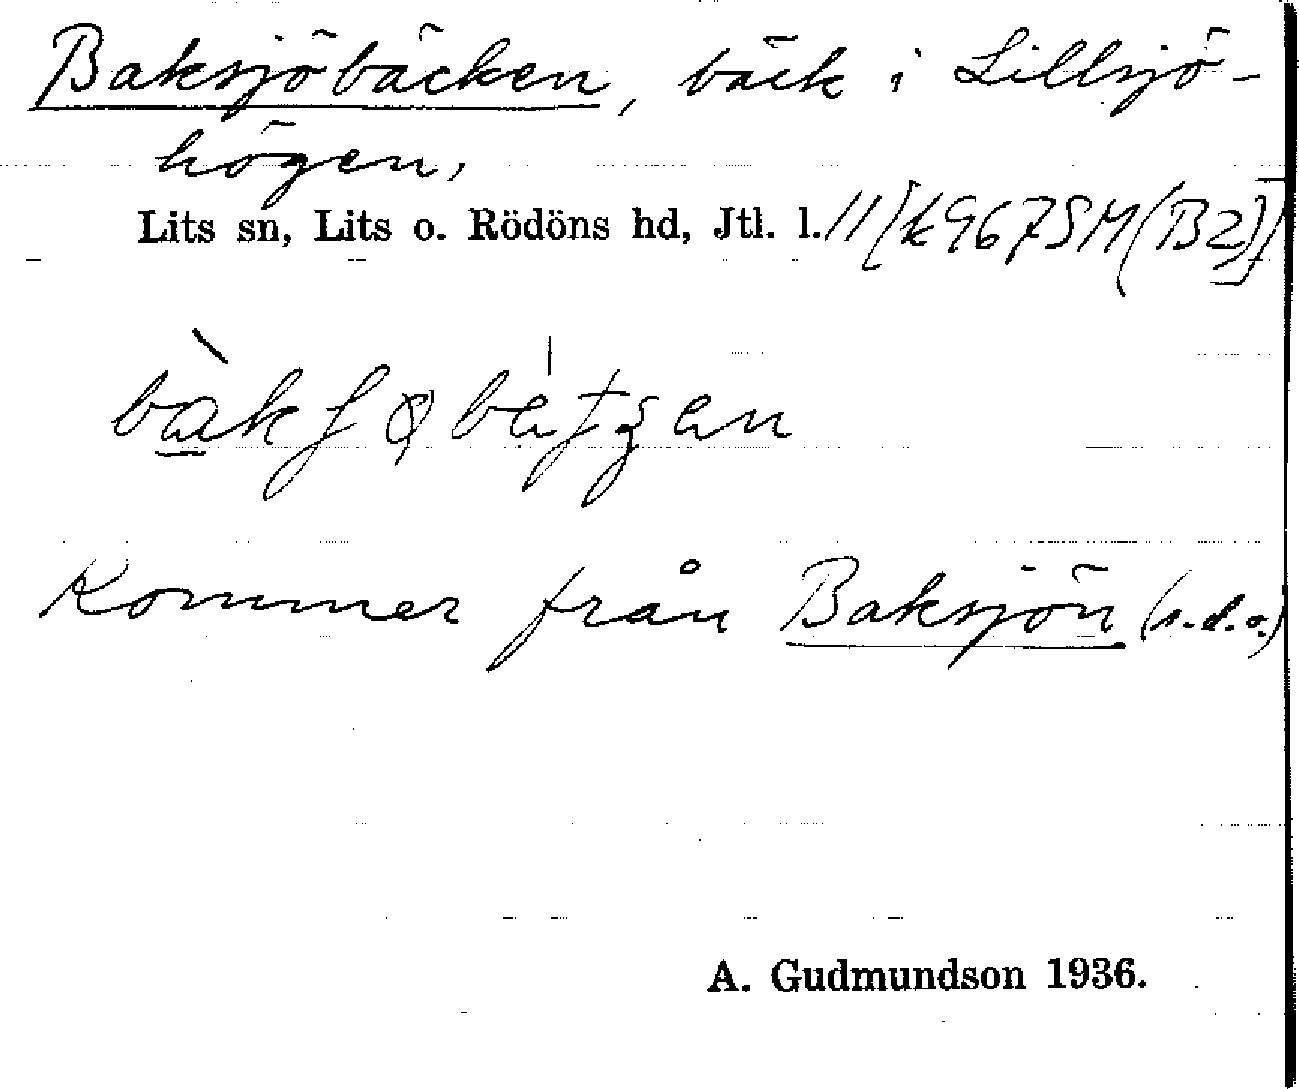 Baksjöbäcken, bäck i Lillsjö-
högen,
Lits sn, Lits o. Rödöns hd, Jtl. l. // [k967SM(B2)]
Kommer från Baksjön (s.d.o.)
A. Gudmundson 1936.